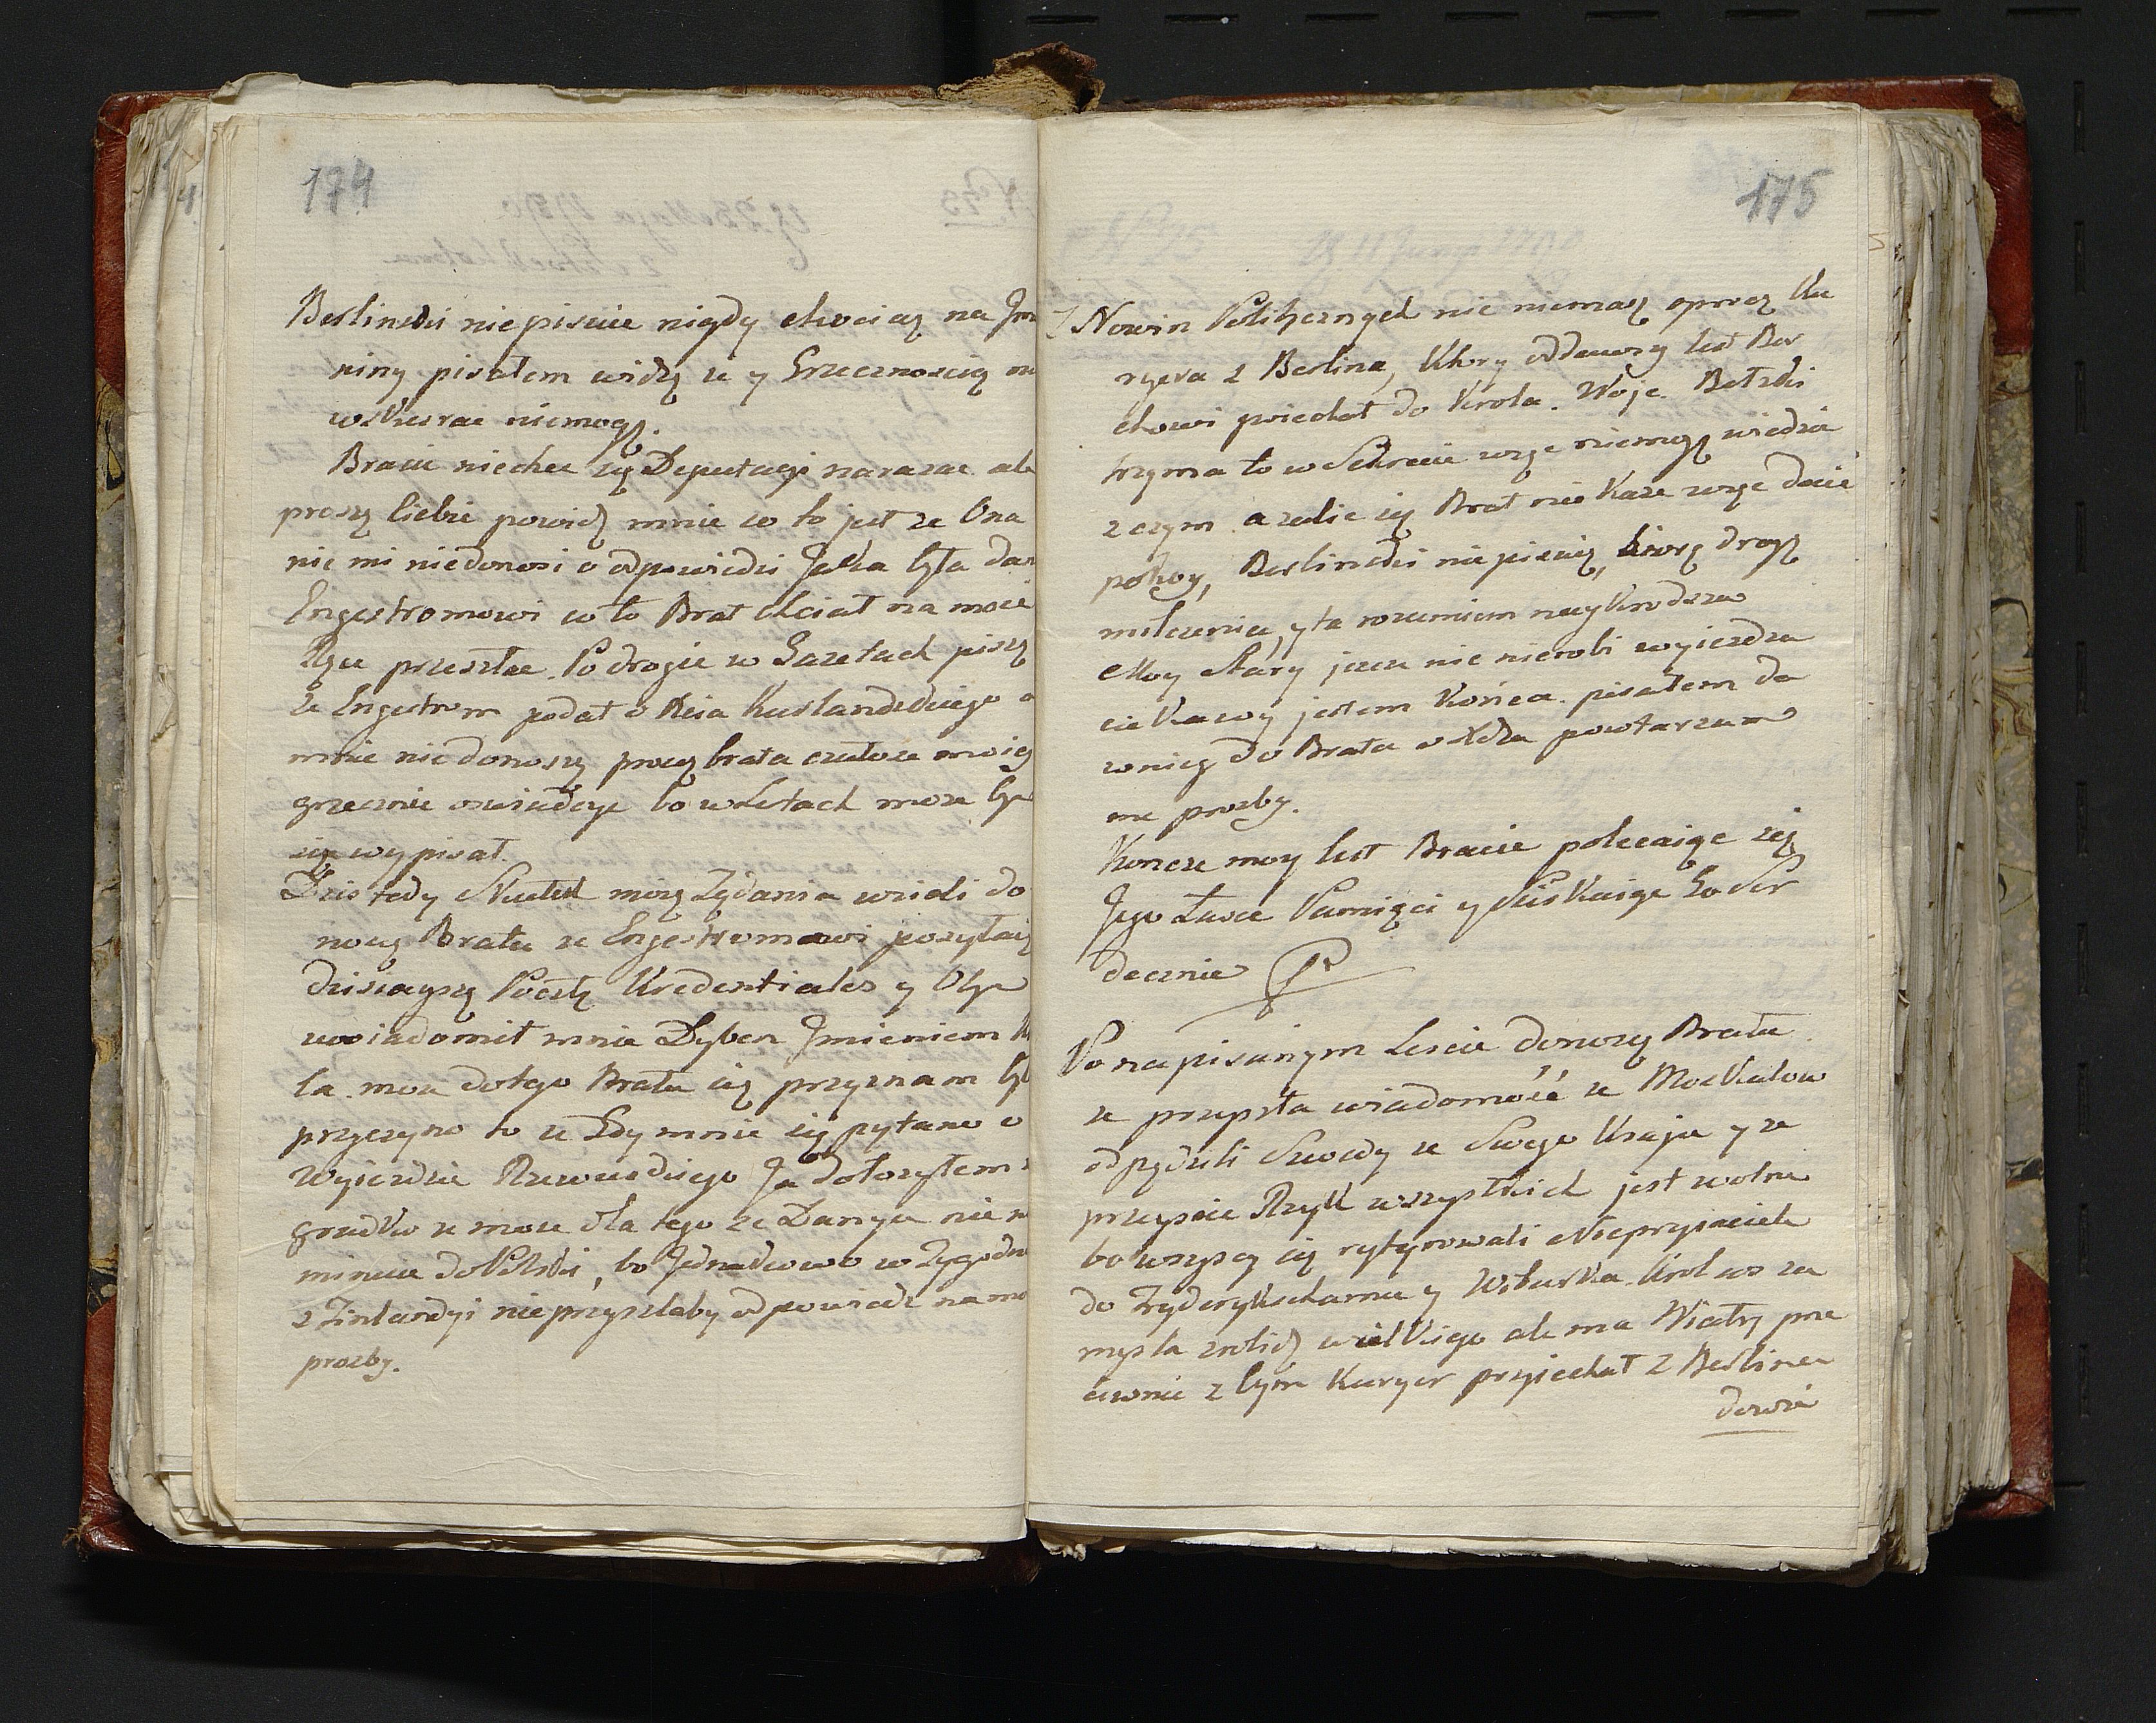 174
Berlinski niepisuie nigdy chociaz na Jm
niny pisałem widzę ze y Grzecznoscią
wskurac niemogę.
Bracie niechce się Deputacyi narazac ale
proszę Ciebie powidz mnie co to jest ze Ona
nic mi niedonosi o odpowiedzi Jaka była dan
Engestromowi co to Brat chciał na moie
Ręce przesłac. Po drugie w Gazetach piszą
ze Engestrom podał o Xcia Kurlandzkiego
mnie nie donoszą proszę brata czułosc moię
grzecznie oswiadczyc bo w Listach moze
się wypisał.
Dzis tedy Skutek moię Ządania wzieli do
noszę Bratu ze Engestromowi posyłaią
dzisieyszą Pocztą Kredentiales y
uwiadomił mnie Dyben Jmieniem K
la. mou dotego Bratu się przyznam
przyczyno to ze Gdy mnie się pytano o
Wyiezdzie Rzewuskiego Ja dołozyłem
gredko ze moze dla tego ze Dansya nie m
minuie do Polski, bo Jednakowo w Tygodn
z Finlandyi nieprzyszłaby odpowiedz na mo
prozby.
175
Nowin Politycznych nic niemasz oprocz Ku
ryera z Berlina, Ktory oddawszy list Bor
chowi poiechał do Krola. Woje. Betzki
trzyma to w Sekrecie więc niemogę wiedzieć
z czym a zalic się Brat nie Kaze więc dac
pokoy, Berlinski nie pisuią, biorę drogę
milczenia, y ta rozumiem naykrodsza
Moy Stary jeszcze nic nierobi wyiezdza
ciekawy jestem Końca. pisałem da
wniey do Brata o Xdza powtarzam
me prozby.
Koncze moy list Bracie polecaiąc się
Jego Łasce Pamięci y sciskaiąc Go Ser
decznie
Po napisanym Liscie donoszę Bratu
ze przyszła wiadomość ze Moskalow
odpędzili Szwedy ze Swego Kraju y ze
przeyscie Rzyk wszystkich jest wolne
bo wszyscy się rytyrowali Nieprzyiaciele
do Frydrykschamu y Wiburka. Krol cos za
mysla zrobidz wielkiego ale ma Wiatry prze
ciwnie z tym Kuryer przyiechał z Berlina
dowie